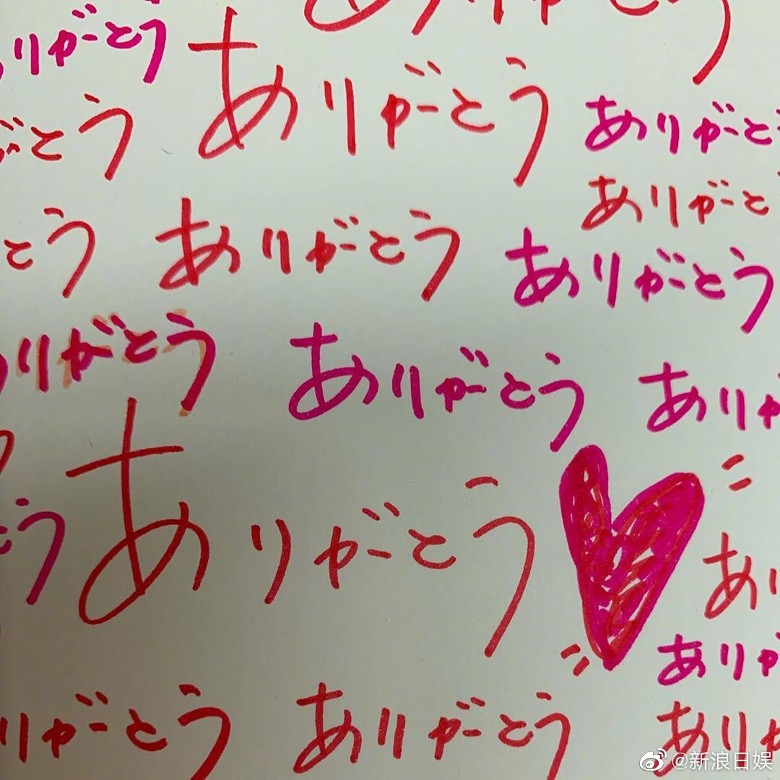 ありがとう
りがとう
ありがとう
ありがと
がとう
ありがと
とう
ありがとう
ありがとう
りがとう
ありがとう
ありが
ありがとう
う
あり
ありが
りがとう
ありがとう
ありが
@新浪日娱